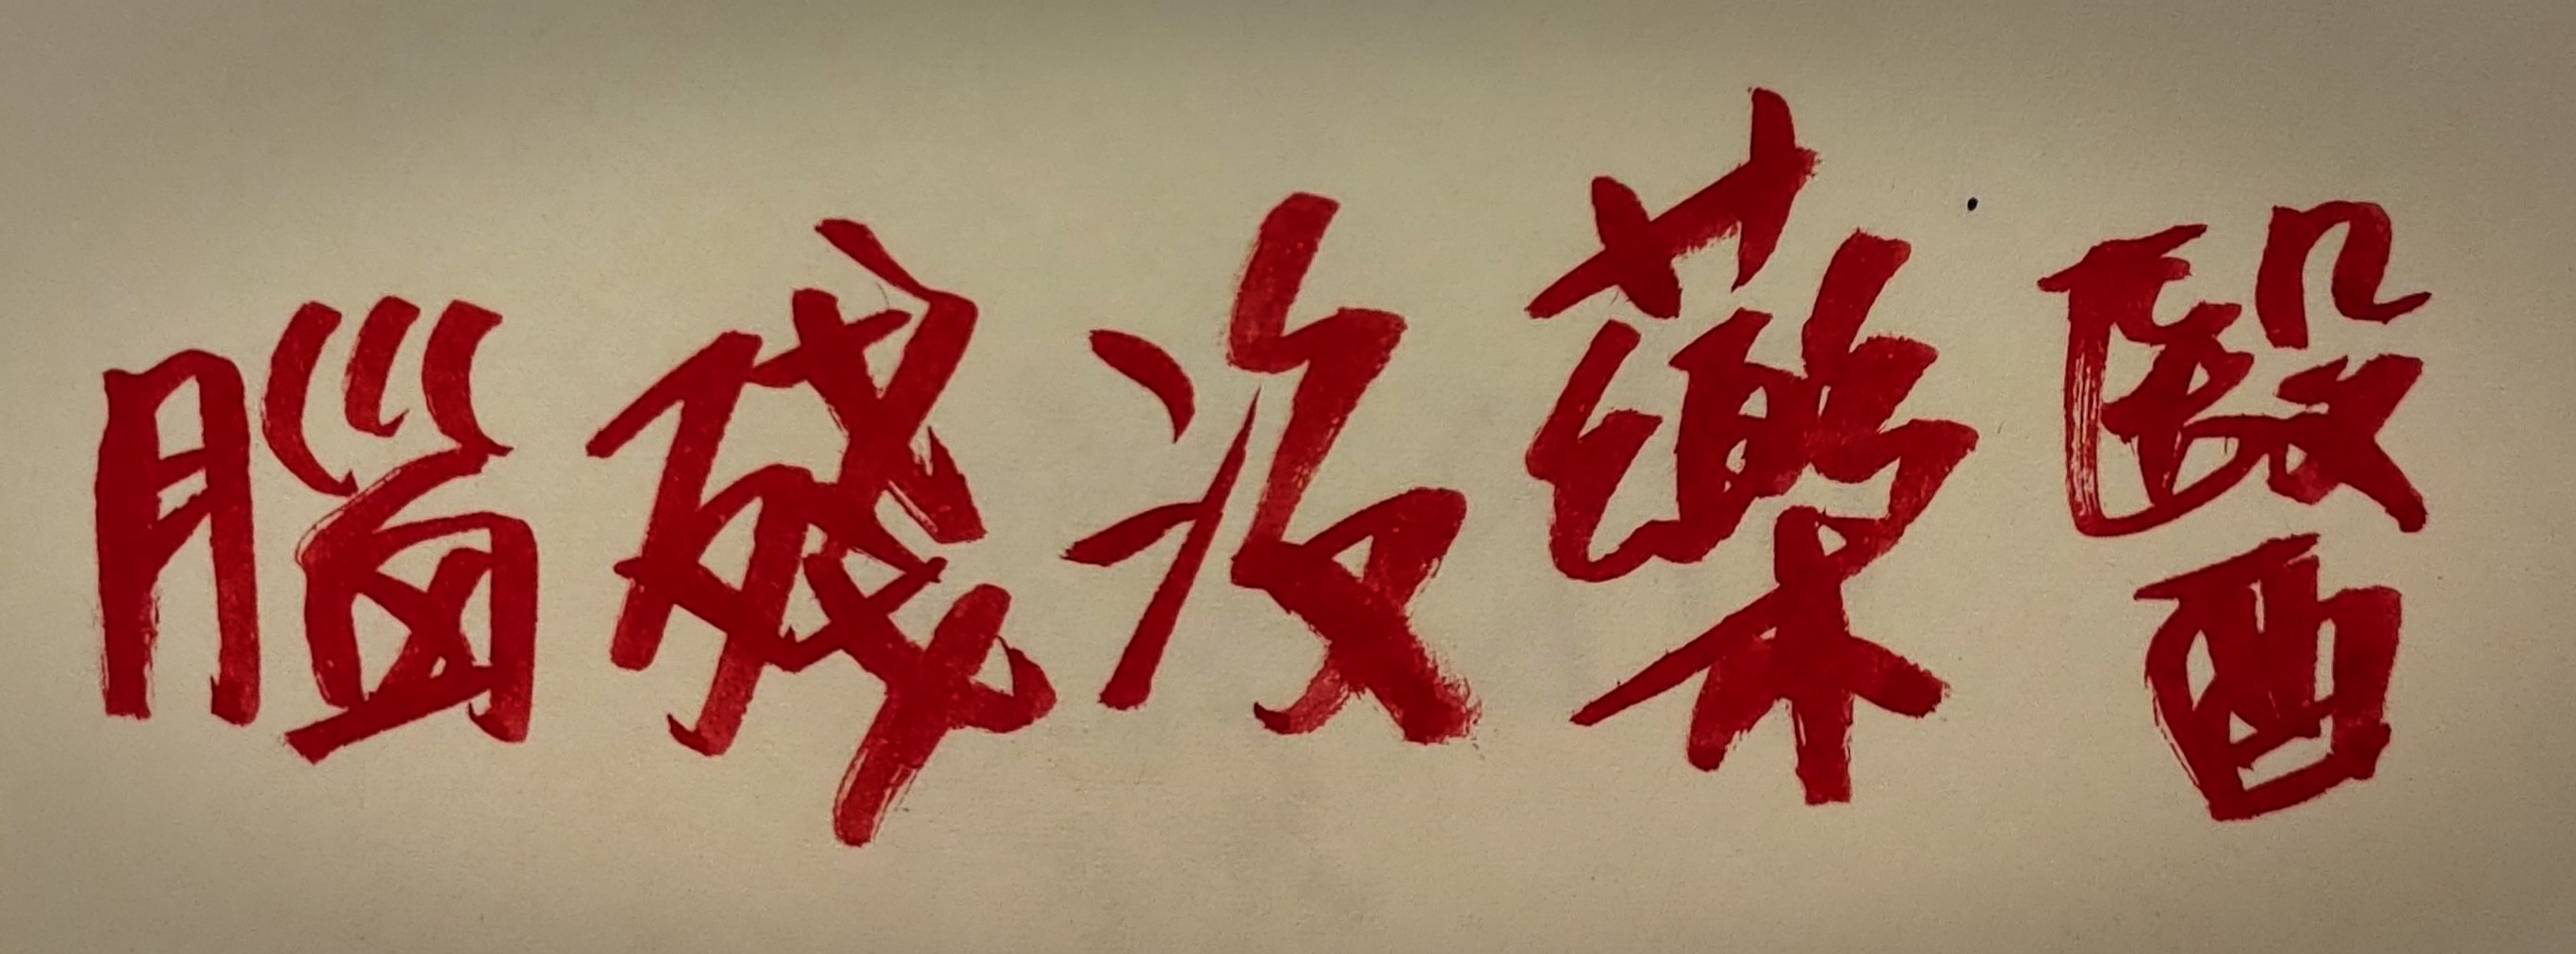 腦殘沒藥醫